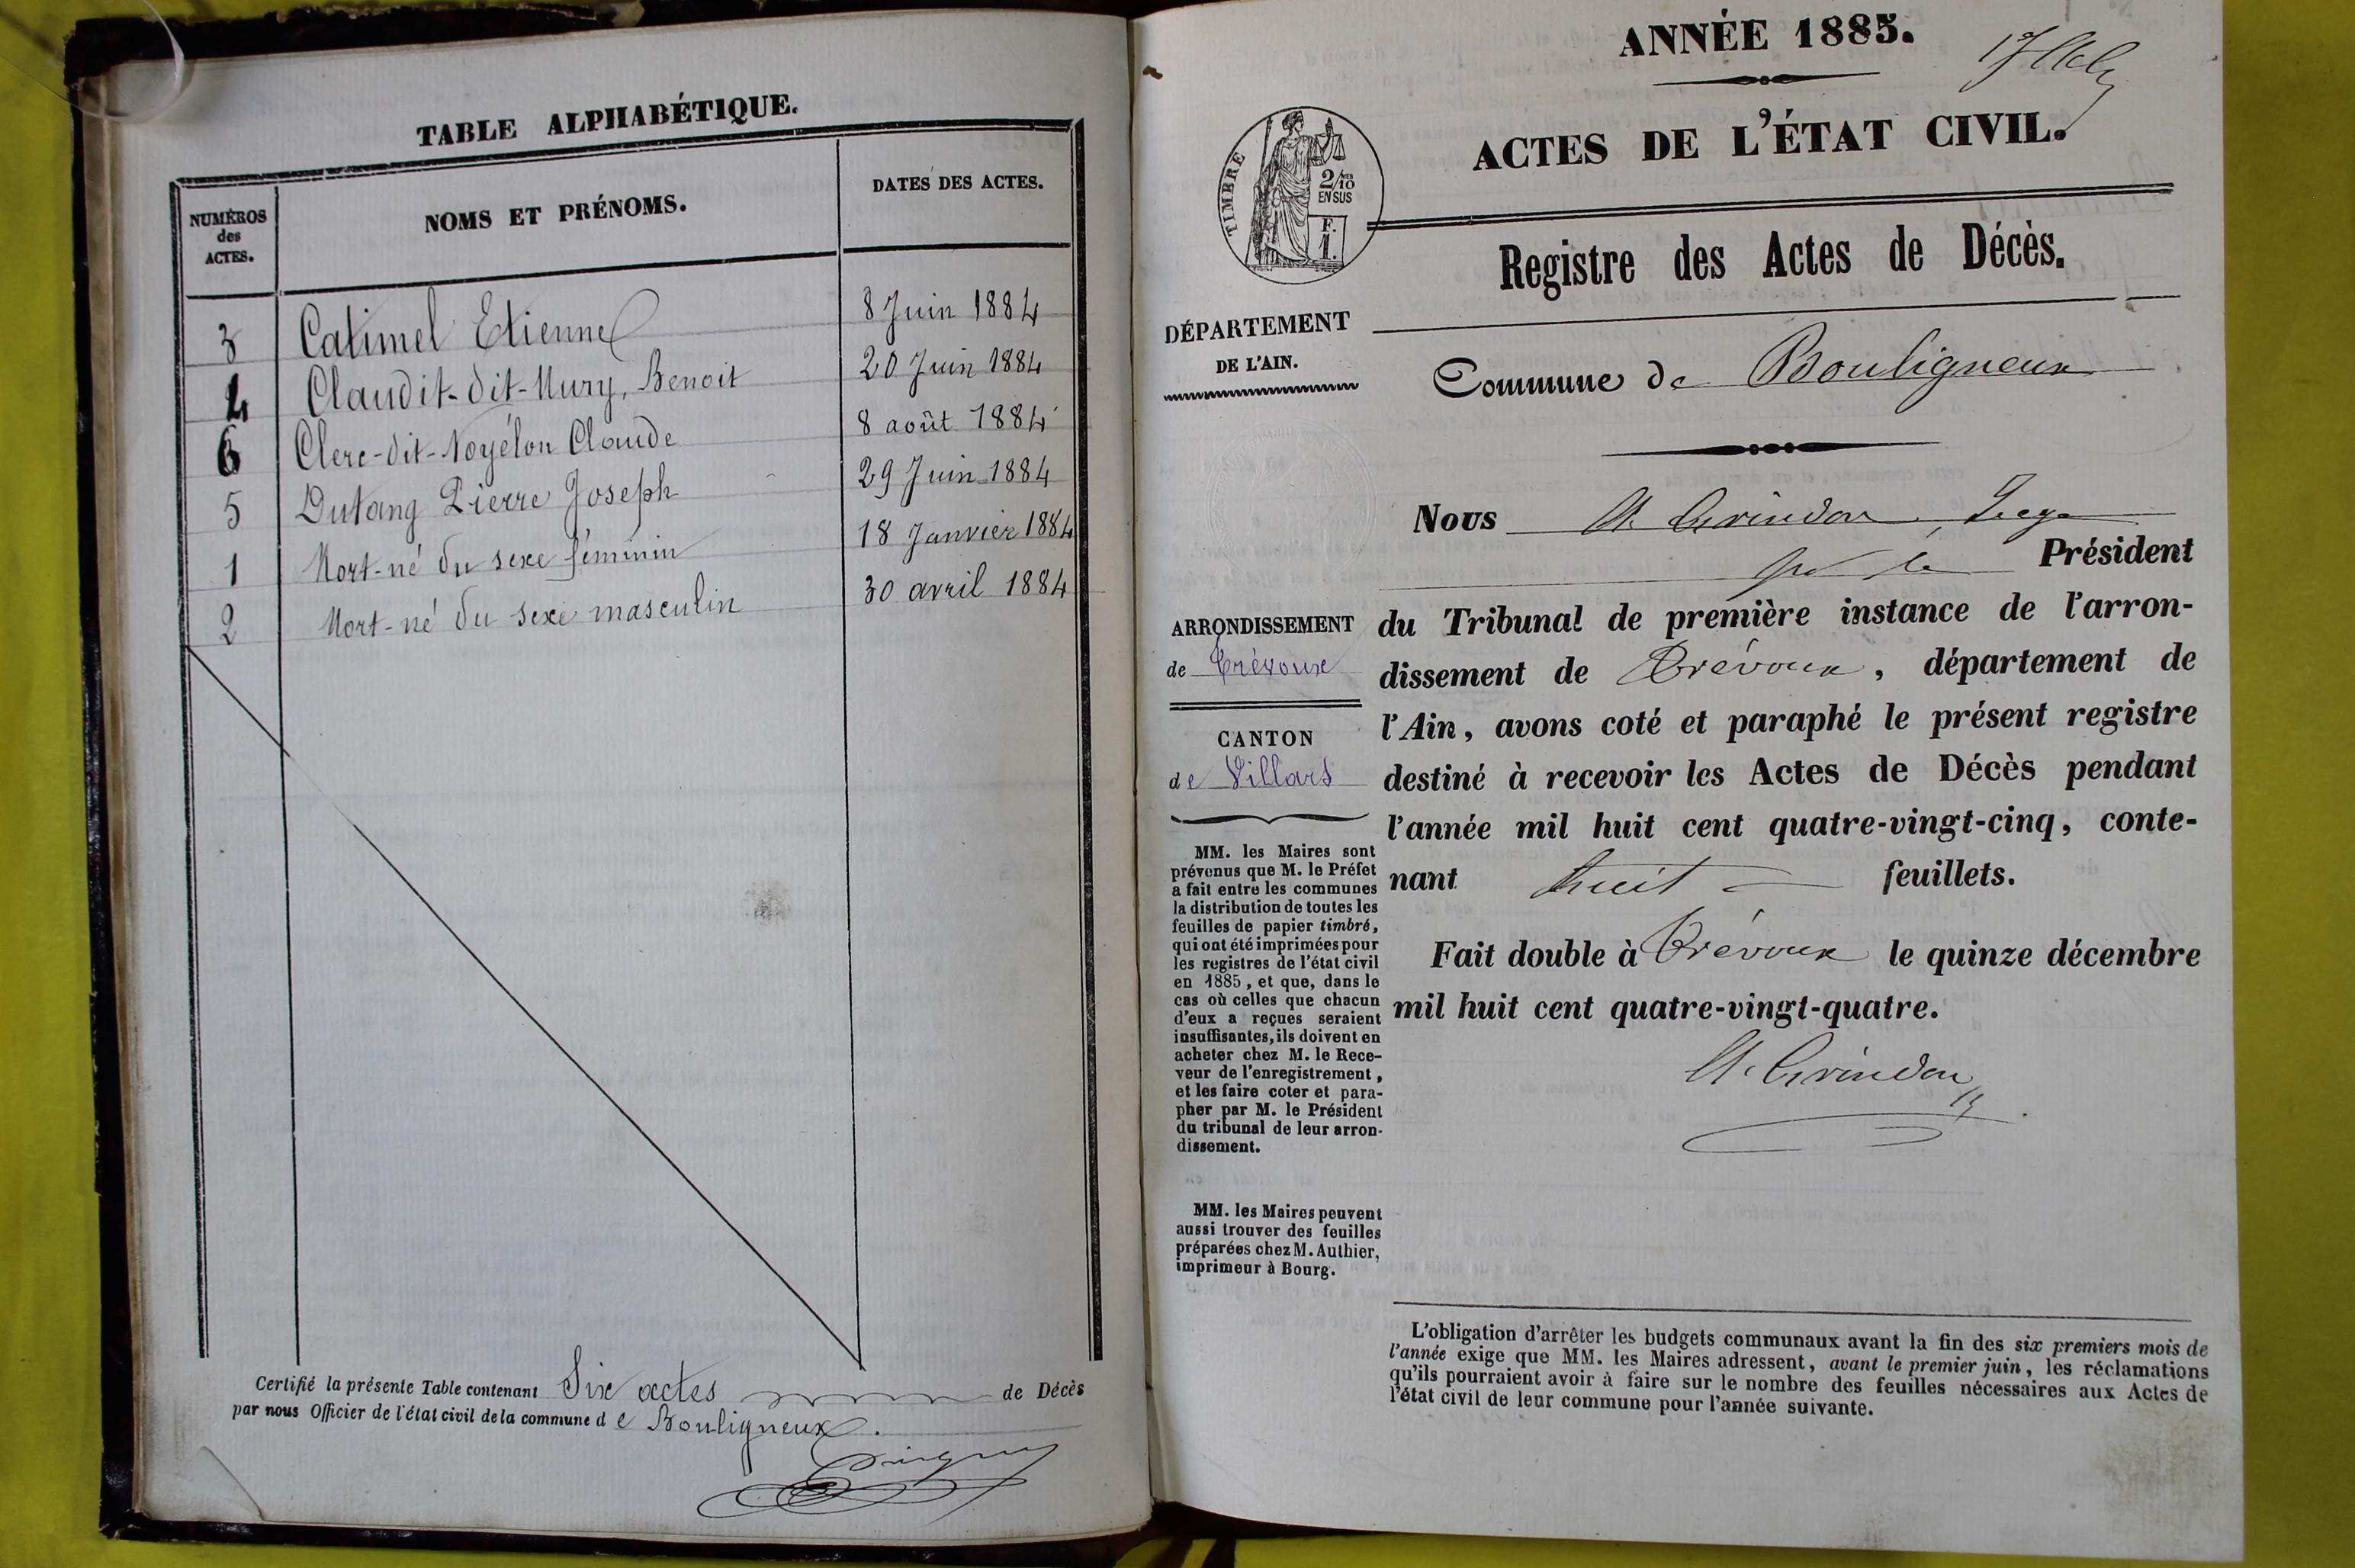 TABLE ALPHABÉTIQUE.
NUMÉROS
des
ACTES.
NOMS ET PRÉNOMS.
DATES DES ACTES.
3 Catimel Etienne 8 Juin 1884
4 Claudit-dit-Mury, Benoit 20 Juin 1884
6 Clerc-dit-Noyélon Claude 8 août 1884
5 Dutang Pierre Joseph 29 Juin 1884
1 Mort-né du sexe féminin 18 Janvier 1884
2 Mort-né du sexe masculin 30 avril 1884
Certifié la présente Table contenant Six actes de Décès
par nous Officier de l'état civil de la commune de Bouligneux.
ANNÉE 1885.
ACTES DE L'ÉTAT CIVIL.
TIMBRE
2/10
EN SUS
F.
1.
Registre des Actes de Décès.
DÉPARTEMENT
DE L'AIN.
Commune de Bouligneux
Nous Grindon, Juge
Président
ARRONDISSEMENT
de Trévoux
CANTON
de Villars
du Tribunal de première instance de l'arron-
dissement de Trévoux, département de
l'Ain, avons coté et paraphé le présent registre
destiné à recevoir les Actes de Décès pendant
l'année mil huit cent quatre-vingt-cinq, conte-
nant huit feuillets.
Fait double à Trévoux le quinze décembre
mil huit cent quatre-vingt-quatre.
Grindon
MM. les Maires sont
prévenus que M. le Préfet
a fait entre les communes
la distribution de toutes les
feuilles de papier timbré,
qui ont été imprimées pour
les registres de l'état civil
en 1885, et que, dans le
cas où celles que chacun
d'eux a reçues seraient
insuffisantes, ils doivent en
acheter chez M. le Rece-
veur de l'enregistrement,
et les faire coter et para-
pher par M. le Président
du tribunal de leur arron-
dissement.
MM. les Maires peuvent
aussi trouver des feuilles
préparées chez M. Authier,
imprimeur à Bourg.
L'obligation d'arrêter les budgets communaux avant la fin des six premiers mois de
l'année exige que MM. les Maires adressent, avant le premier juin, les réclamations
qu'ils pourraient avoir à faire sur le nombre des feuilles nécessaires aux Actes de
l'état civil de leur commune pour l'année suivante.